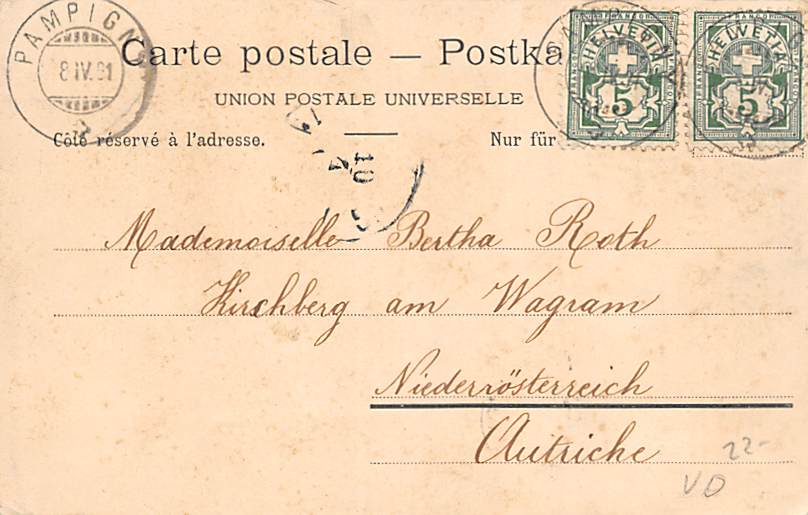 PAMPIGN
8 IV. 01
Carte postale — Postka
UNION POSTALE UNIVERSELLE
Côté réservé à l'adresse.
Nur für
FRANCO
HELVETIA
5
FRANCO
HELVETIA
5
10
4
Mademoiselle Bertha Roth
Kirschberg am Wagram
Niederrösterreich
Autriche
22-
VD